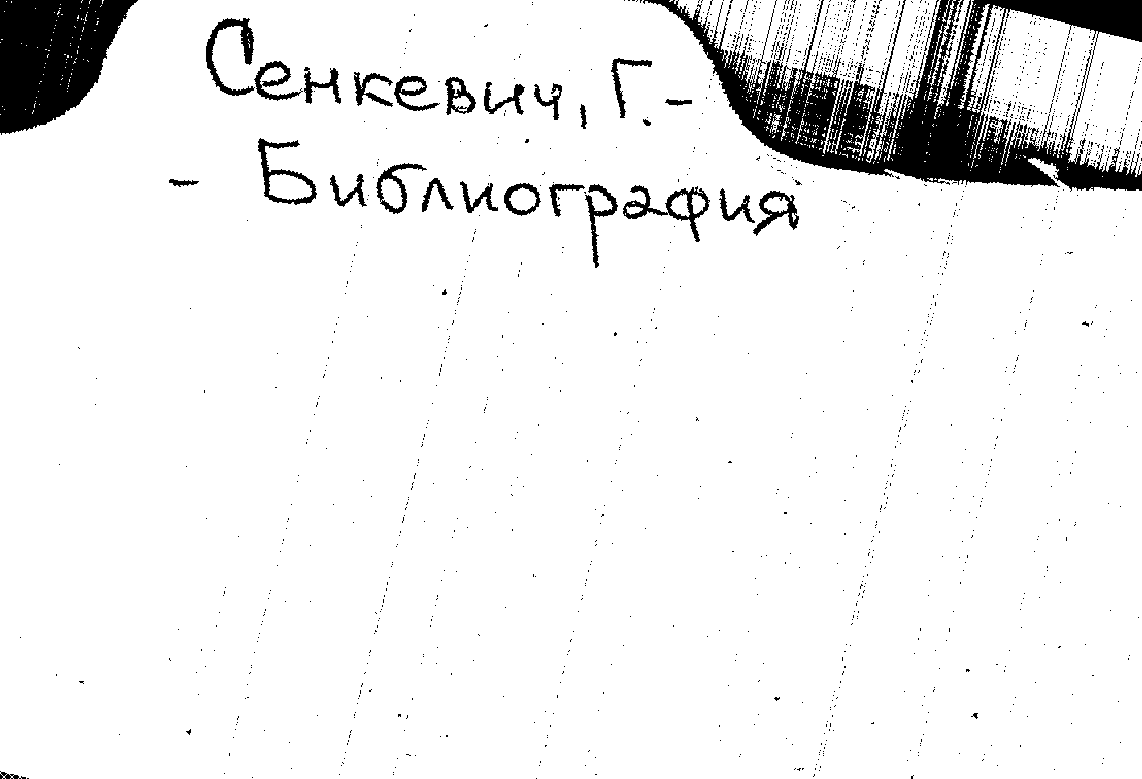 Сенкевич, Г. -
- Библиография